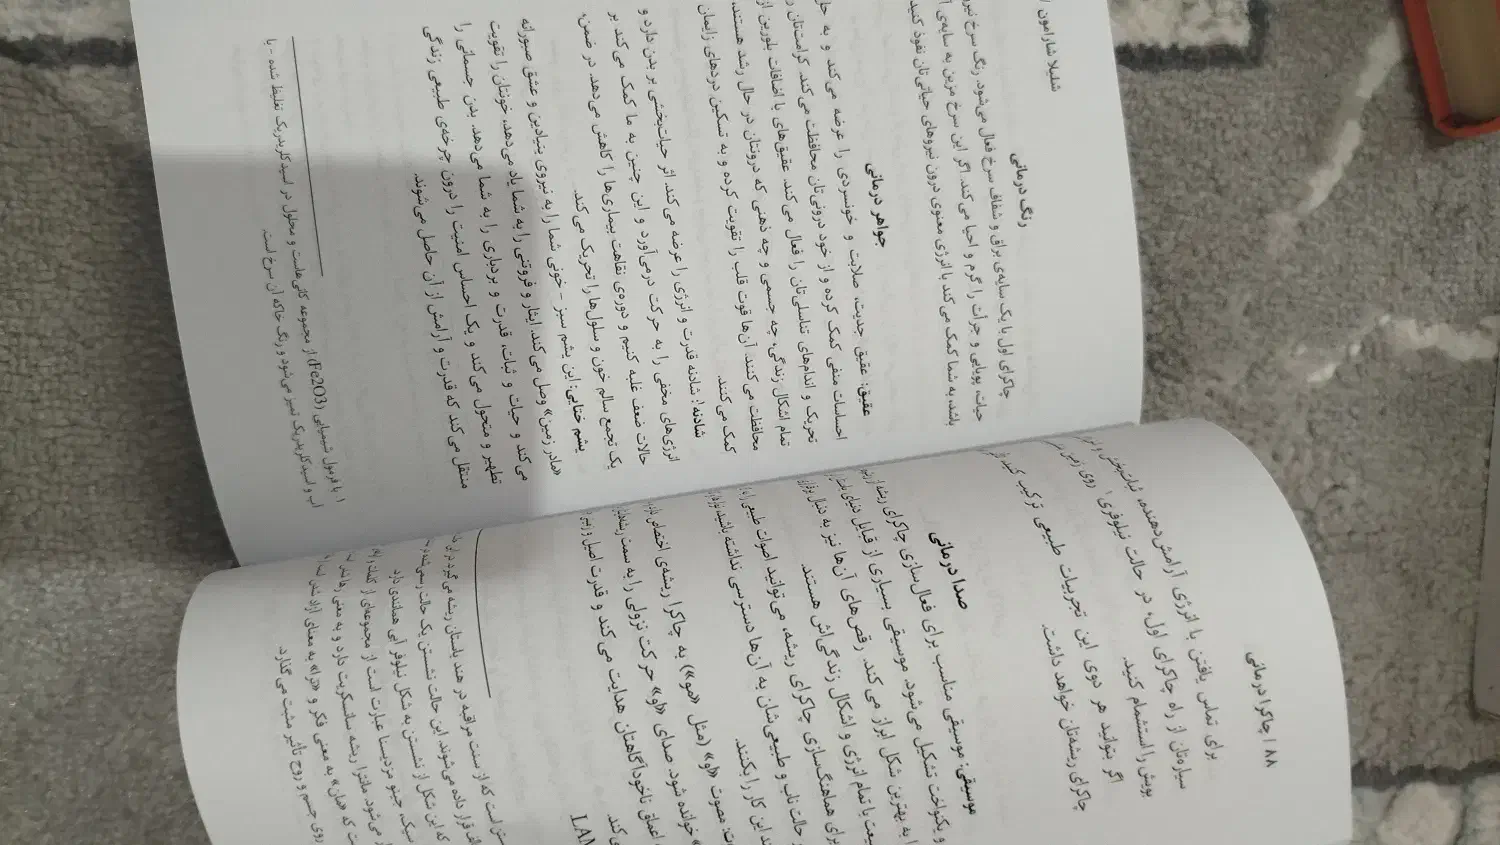 ۸۸ | چاکرا درمانی
برای تماس یافتن با انرژی آرامش‌دهنده، ثبات‌بخش و
سیاره‌تان از راه چاکرای اول، در حالت نیلوفری۱ روی زمین
بویش را استشمام کنید.
اگر بتوانید هر دوی این تجربیات طبیعی ترکیب کنید
چاکرای ریشه‌تان خواهد داشت.
صدا درمانی
موسیقی: موسیقی مناسب برای فعال‌سازی چاکرای ریشه از
و یکنواخت تشکیل می‌شود. موسیقی بسیاری از قبایل دنیای
به بهترین شکل ابراز می‌کند. رقص‌های آن‌ها نیز به دنبال
با تمام انرژی و اشکال زندگی‌اش هستند.
برای هماهنگ‌سازی چاکرای ریشه، می‌توانید اصوات طبیعی
حالت ناب و طبیعی‌شان به آن‌ها دسترسی نداشته باشید،
این کار را بکنند.
مصوت «او» (مثل «مو») به چاکرا ریشه‌ی اختصاص
خوانده شود. صدای «او» حرکت نزولی را به سمت
اعماق ناخودآگاهتان هدایت می‌کند و قدرت اصیل و زمینی
LAM
است که از سنت مراقبه در هند باستان ریشه می‌گیرد
قرار داده می‌شوند. این حالت نشستن یک حالت رسمی
که این شکل از نشستن به شکل نیلوفر آبی همانندی دارد.
می‌شود. مانترا ریشه سانسکریت دارد و به معنی
که «مان» به معنی فکر و «ترا» به معنای آزاد شدن
روی جسم و روح تأثیر مثبت می‌گذارد.
شلیلا شارامون /
رنگ درمانی
چاکرای اول با یک سایه‌ی براق و شفاف سرخ فعال می‌شود. رنگ سرخ
حیات، پویایی و جرأت را گرم و احیا می‌کند. اگر این سرخ مزین به سایه‌ی
باشد، به شما کمک می‌کند با انرژی معنوی درون نیروهای حیاتی‌تان نفوذ کنید.
جواهر درمانی
عقیق: عقیق جدیت، صلابت و خونسردی را عرضه می‌کند و به
احساسات منفی کمک کرده و از خود درونی‌تان محافظت می‌کند. کرامت‌تان
تحریک و اندام‌های تناسلی‌تان را فعال می‌کند. عقیق‌های با اضافات بلورین از
تمام اشکال زندگی، چه جسمی و چه ذهنی که درونتان در حال رشد هستند،
محافظت می‌کنند. آن‌ها قوت قلب را تقویت کرده و به تسکین دردهای زایمان
کمک می‌کنند.
شادنه۱: شادنه قدرت و انرژی را عرضه می‌کند، اثر حیات‌بخشی بر بدن دارد و
انرژی‌های مخفی را به حرکت درمی‌آورد و این چنین به ما کمک می‌کند بر
حالات ضعف غلبه کنیم و دوره‌ی نقاهت بیماری‌ها را کاهش می‌دهد. در ضمن،
یک تجمع سالم خون و سلول‌ها را تحریک می‌کند.
یشم ختایی: این یشم سبز - خونی شما را به نیروی بنیادین و عشق صبورانه
«مادر زمین» وصل می‌کند. ایثار و فروتنی را به شما یاد می‌دهد، خونتان را تقویت
می‌کند و حیات و ثبات، قدرت و بردباری را به شما می‌دهد. بدن جسمانی را
تطهیر و متحول می‌کند و یک احساس امنیت را درون چرخه‌ی طبیعی زندگی
منتقل می‌کند که قدرت و آرامش از آن حاصل می‌شوند.
۱. با فرمول شیمیایی (Fe2O3) از مجموعه کانی‌هاست و محلول در اسید کلریدریک تغلیظ شده - با
آب و اسید کلریدریک تمیز می‌شود و رنگ خاکه آن سرخ است.